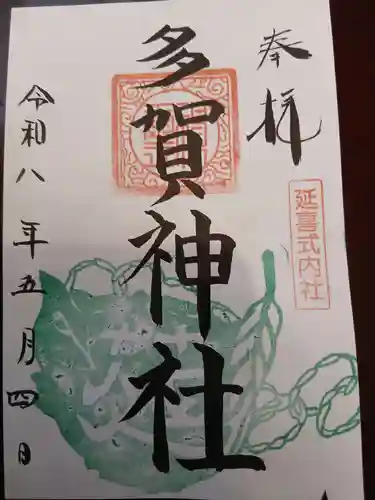 奉拝
延喜式内社
多賀神社
令和八年五月四日